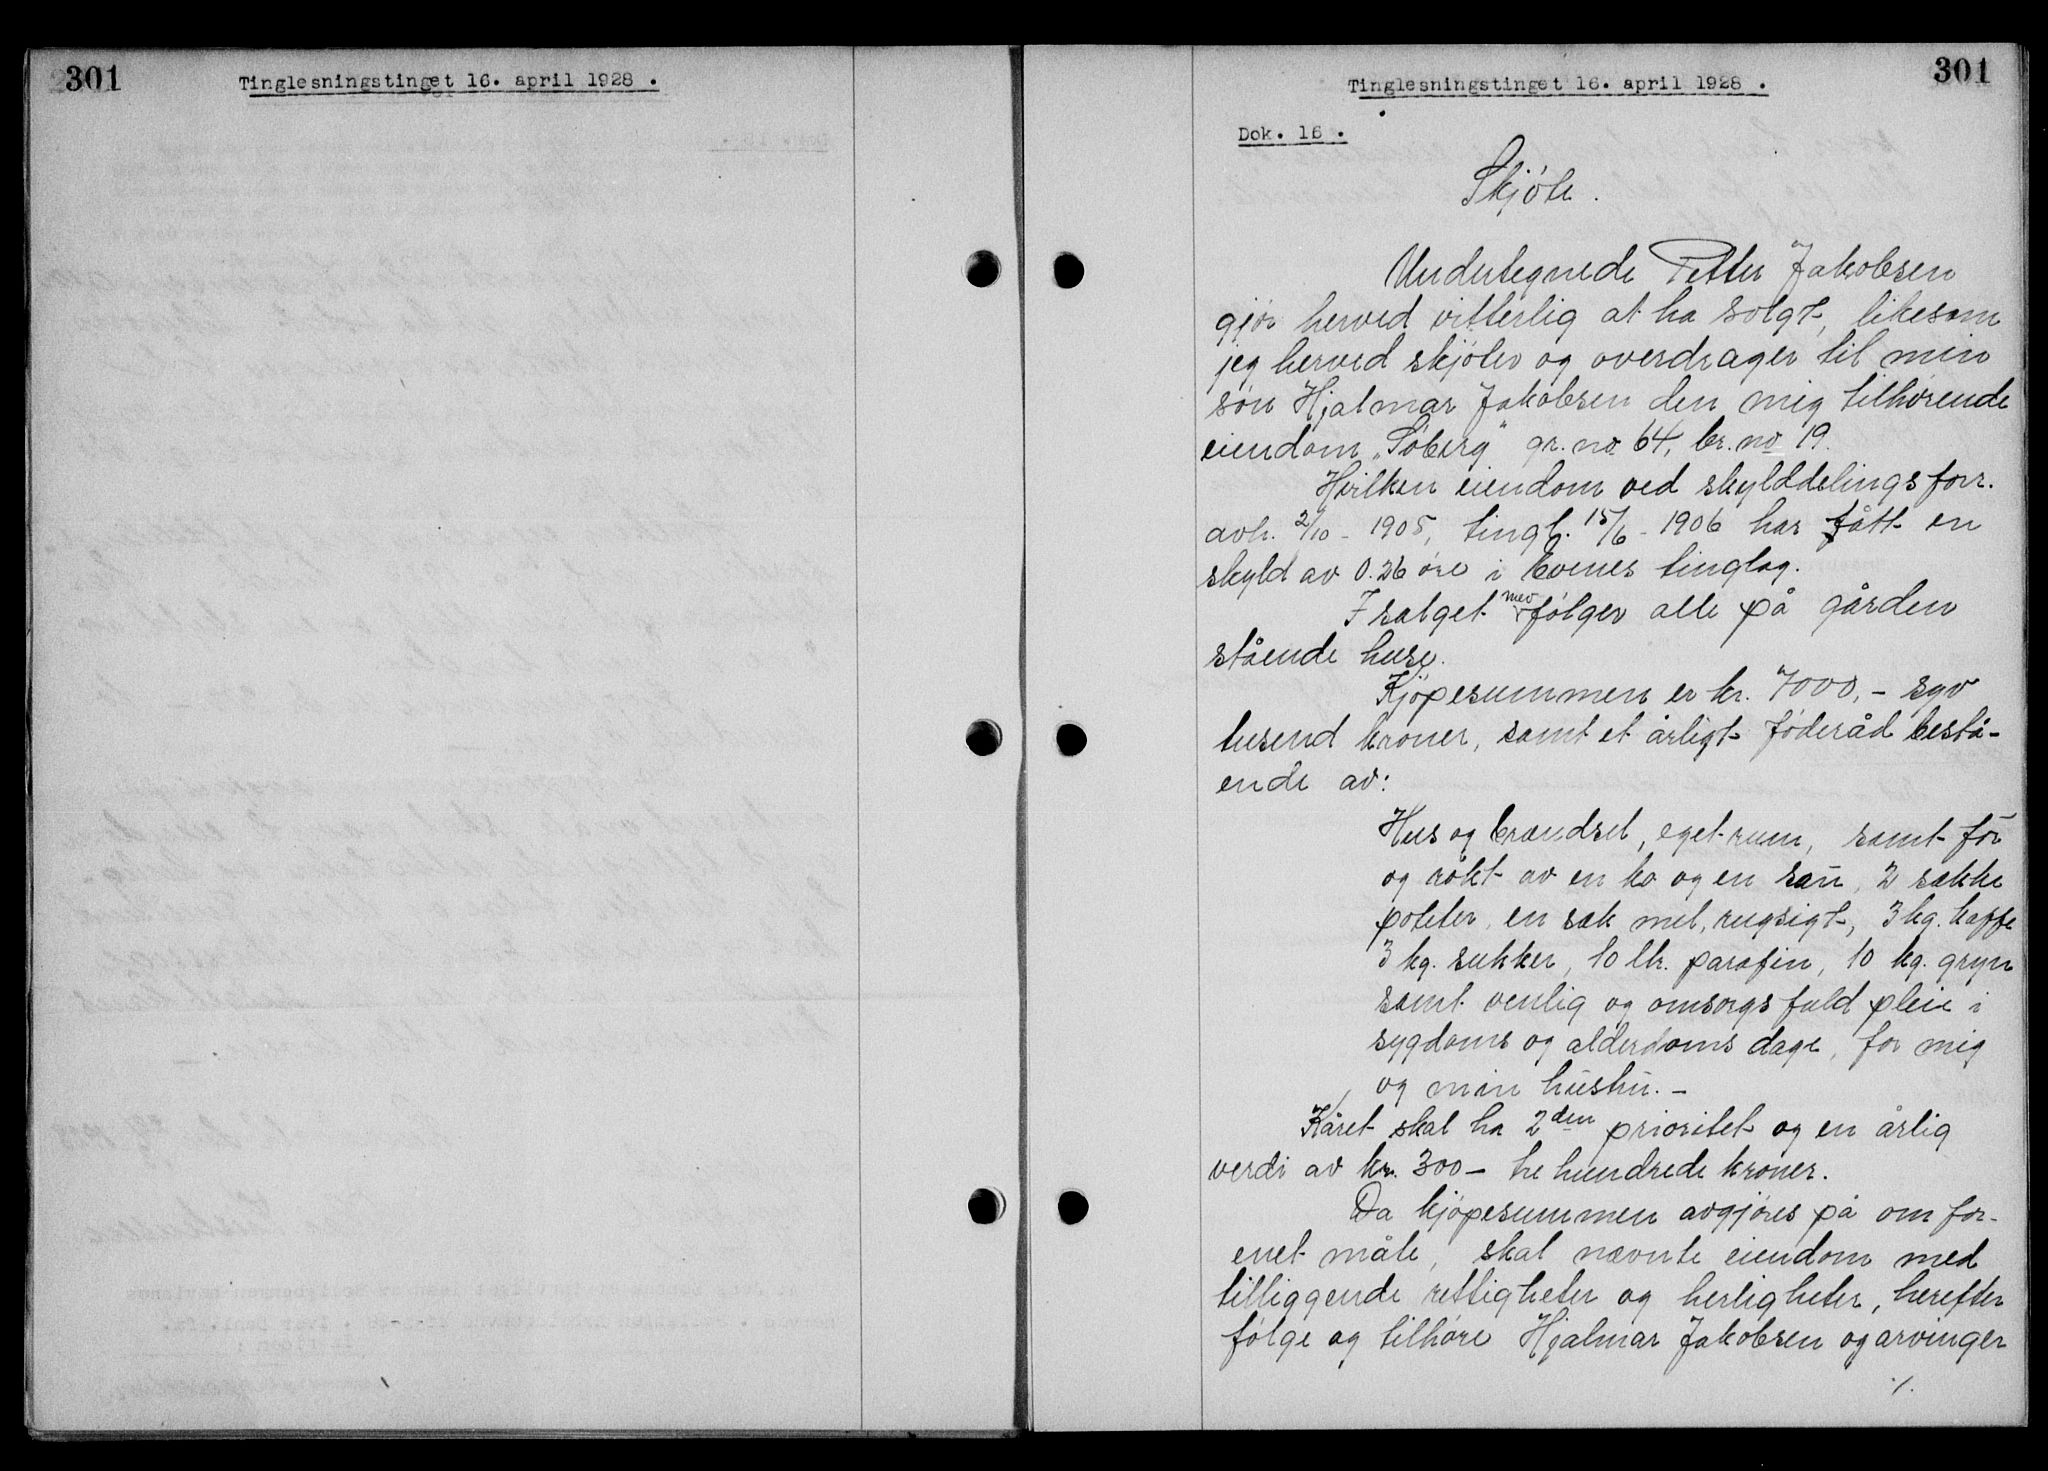 301
Tinglesningstinget 16. april 1928 .
301
Tinglesningstinget 16. april 1928 .
Dok. 16 .
Skjöte .
Undertegnede Petter Jakobsen
gjör herved vitterlig at ha solgt, likesom
jeg herved skjöter og overdrager til min
sön Hjalmar Jakobsen den mig tilhörende
eiendom „Söberg" gr. no 64, br. no 19.
Hvilken eiendom ved skylddelingsforr.
avh. 2/10 - 1905, tingl. 15/6 - 1906 har fått en
skyld av 0.26 öre i Evenes tinglag.
I salget medfölger alle på gården
stående huse.
Kjöpesummen er kr. 7000,- syv
tusend kroner, samt et årligt föderåd bestå-
ende av:
Hus og brændsel, eget rum, samt för
og rökt av en ko og en sau, 2 sække
poteter, en sæk mel, rugsigt, 3 kg. kaffe
3 kg. sukker, 10 ltr. parafin, 10 kg. gryn
samt venlig og omsorgsfuld pleie i
sygdoms og alderdoms dage, for mig
og min hustru. -
Kåret skal ha 2den prioritet og en årlig
verdi av kr. 300- tre hundrede kroner.
Da kjöpesummen avgjöres på om for-
enet måte, skal nævnte eiendom med
tilliggende rettigheter og herligheter, herefter
fölge og tilhöre Hjalmar Jakobsen og arvinger
./.